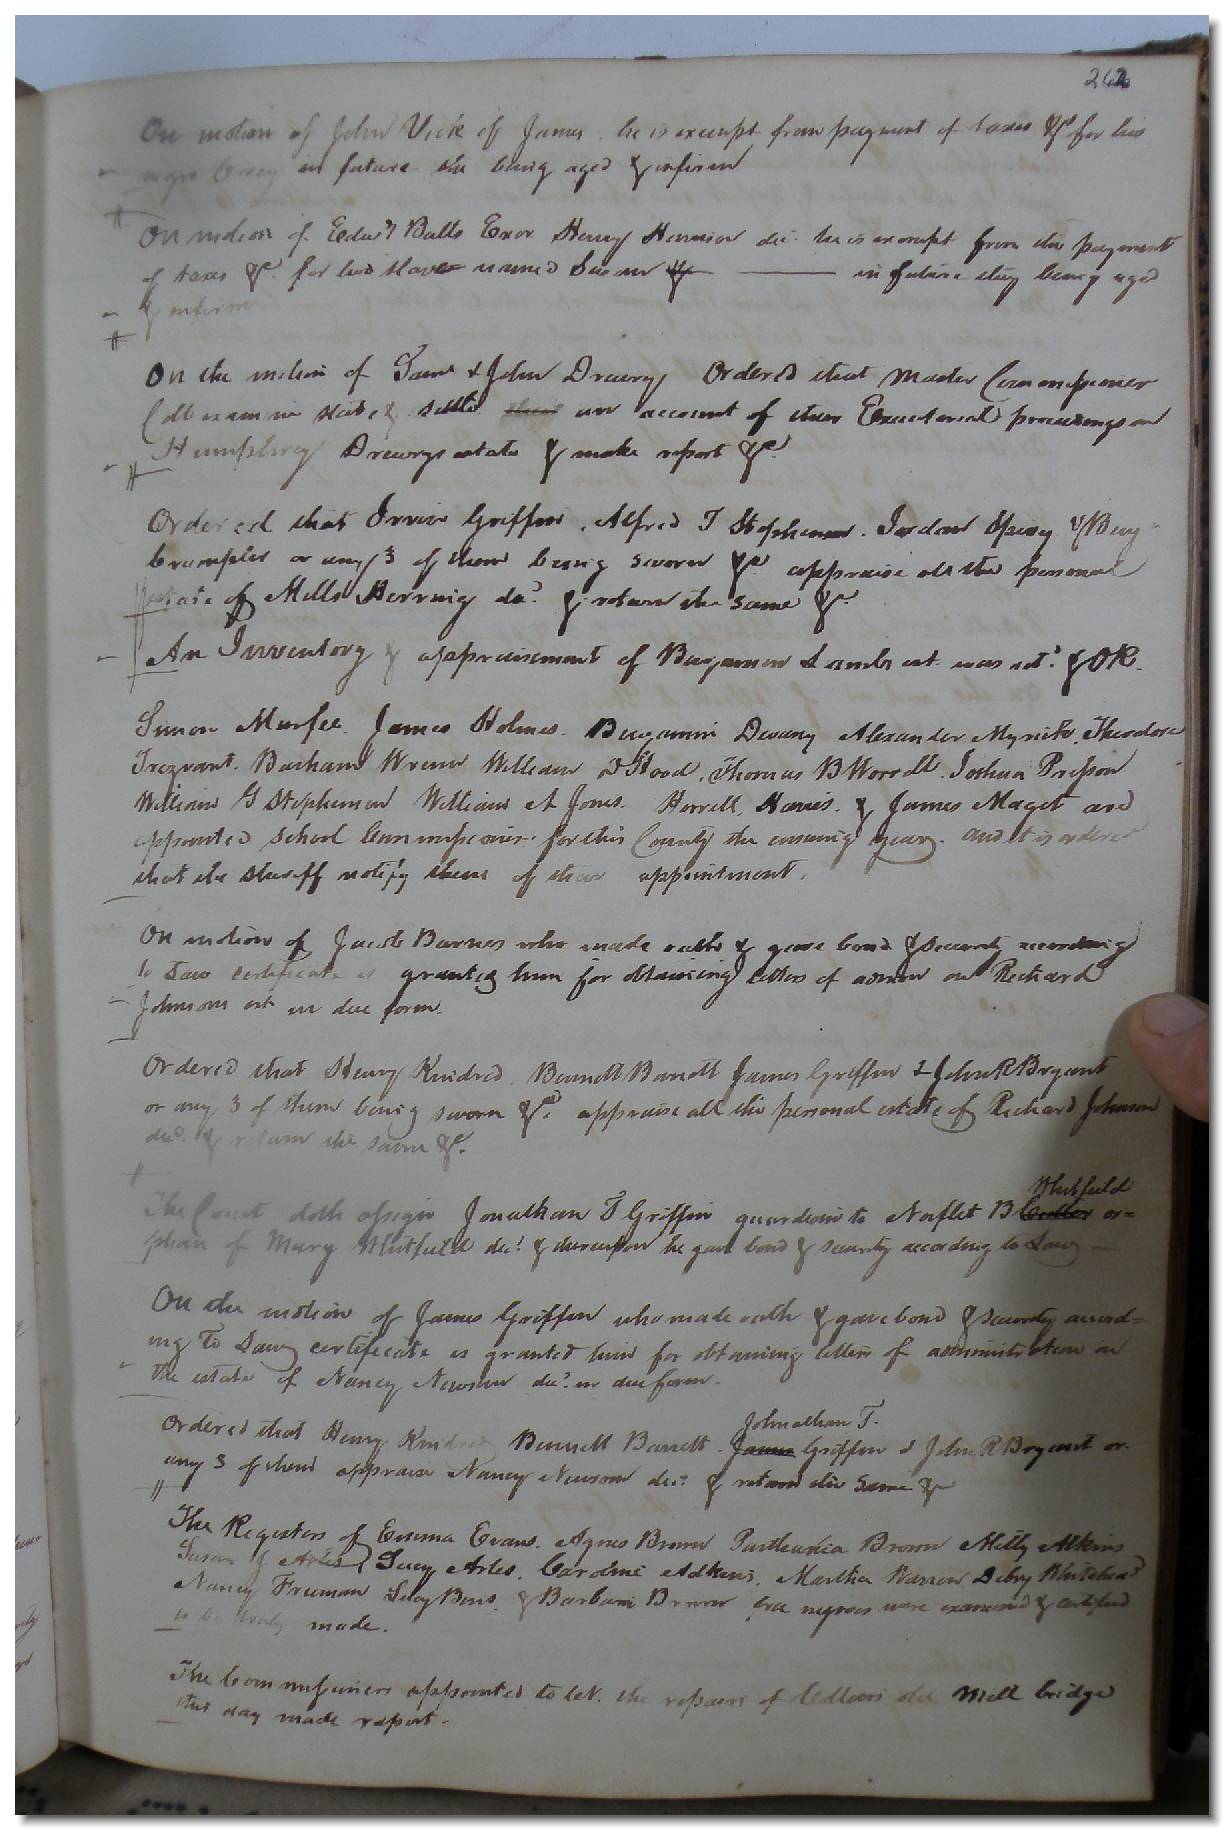 262
On motion of John Vick of James. he is exempt from payment of taxes &c for his
negro in future she being aged & infirm
On motion of Edwd Butts Exor Henry Harrison dec. he is exempt from the payment
of taxes &c. for two slaves named in future they being aged
& infirm
On the motion of Saml & John Drewry Ordered that Master Commissioner
Cobb examine state & settle an account of their Executorial proceedings on
Humphrey Drewrys estate & make report &c.
Ordered that Irvin Griffin, Alfred T Stephenson. Jordan Spivy & Benj
Crumpler or any 3 of them being sworn &c appraise all the personal
estate of Mills Herring dec. & return the same &c.
An Inventory & appraisement of Benjamin Lambs est. was ret. & OR.
Simon Murfee. James Holmes. Benjamin Devany Alexander Myrick. Theodore
Trezvant. Barham Wrenn William D Hood. Thomas B Worrell. Joshua Pretlow
William G Stephenson William A Jones. Harris. & James Maget are
appointed school Commissioners for this County the ensuing year. and it is ordered
that the Sheriff notify them of their appointment.
On motion of Jacob Barnes who made oath & gave bond & security according
to Law certificate is granted him for obtaining letters of admon on Richard
Johnsons est in due form.
Ordered that Henry Kindred. Bennett Barrett James Griffin & John R Bryant
or any 3 of them being sworn &c. appraise all the personal estate of Richard Johnson
decd. & return the same &c.
The Court doth assign Jonathan T Griffin guardian to Norflet B Whitfield or=
phan of Mary Whitfield dec. & thereupon he gave bond & security according to Law
On the motion of James Griffin who made oath & gave bond & security accord=
ing to Law certificate is granted him for obtaining letters of administration on
the estate of Nancy Newsom dec. in due form.
Johnathan T.
Ordered that Henry Kindred Bennett Barrett. James Griffin & John R Bryant or
any 3 of them appraise Nancy Newsom dec. & return the same &c
The Registers of Emma Evans. Agnes Brown Parthenia Brown Milly Atkins
Susan J Artes Lucy Artes. Caroline Adkins. Martha Warren Debry Whitehead
Nancy Freeman & Barbara Brown free negroes were examined & certified
to be truly made.
The Commissioners appointed to let. the repairs of old Mill bridge
this day made report.